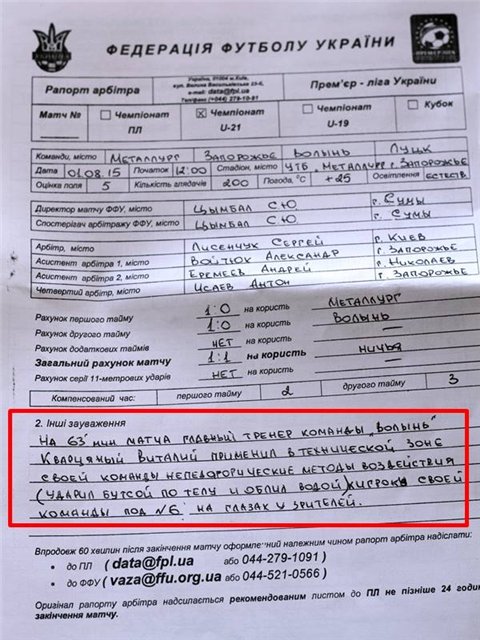 ФЕДЕРАЦІЯ ФУТБОЛУ УКРАЇНИ
УКРАЇНА
ПРЕМ'ЄР-ЛІГА
Рапорт арбітра
Україна, 01004 м.Київ,
e-mail: data@fpl.ua
Прем'єр - ліга України
Матч №
Чемпіонат ПЛ
Чемпіонат U-21
Чемпіонат U-19
Кубок
Команди, місто МЕТАЛЛУРГ ЗАПОРОЖЬЕ ВОЛЫНЬ ЛУЦК
Дата 01.08.15 Початок 12:00 Стадіон, місто УТБ „МЕТАЛЛУРГ" г. ЗАПОРОЖЬЕ
Оцінка поля 5 Кількість глядачів 200 Погода, °С +25 Освітлення ЕСТЕСТВ.
Директор матчу ФФУ, місто ЦЫМБАЛ С.Ю г. СУМЫ
Спостерігач арбітражу ФФУ, місто ЦЫМБАЛ С.Ю г. СУМЫ
Арбітр, місто ЛИСЕНЧУК СЕРГЕЙ г. КИЕВ
Асистент арбітра 1, місто ВОЙТЮК АЛЕКСАНДР г. ЗАПОРОЖЬЕ
Асистент арбітра 2, місто ЕРЕМЕЕВ АНДРЕЙ г. НИКОЛАЕВ
Четвертий арбітр, місто ИСАЕВ АНТОН г. ЗАПОРОЖЬЕ
Рахунок першого тайму 1:0 на користь МЕТАЛЛУРГ
Рахунок другого тайму 1:0 на користь ВОЛЫНЬ
Рахунок додаткових таймів НЕТ на користь —
Загальний рахунок матчу 1:1 на користь НИЧЬЯ
Рахунок серії 11-метрових ударів НЕТ на користь —
Компенсований час: першого тайму 2 другого тайму 3
2. Інші зауваження
НА 63' МИН МАТЧА ГЛАВНЫЙ ТРЕНЕР КОМАНДЫ „ВОЛЫНЬ"
КВАРЦЯНЫЙ ВИТАЛИЙ ПРИМЕНИЛ В ТЕХНИЧЕСКОЙ ЗОНЕ
СВОЕЙ КОМАНДЫ НЕПЕДОГОРИЧЕСКИЕ МЕТОДЫ ВОЗДЕЙСТВИЯ
(УДАРИЛ БУТСОЙ ПО ТЕЛУ И ОБЛИЛ ВОДОЙ) К ИГРОКУ СВОЕЙ
КОМАНДЫ ПОД №6 НА ГЛАЗАХ У ЗРИТЕЛЕЙ.
Впродовж 60 хвилин після закінчення матчу оформлений належним чином рапорт арбітра надіслати:
• до ПЛ ( data@fpl.ua або 044-279-1091 )
• до ФФУ ( vaza@ffu.org.ua або 044-521-0566 )
Оригінал рапорту арбітра надсилається рекомендованим листом до ПЛ не пізніше 24 годин
закінчення матчу.